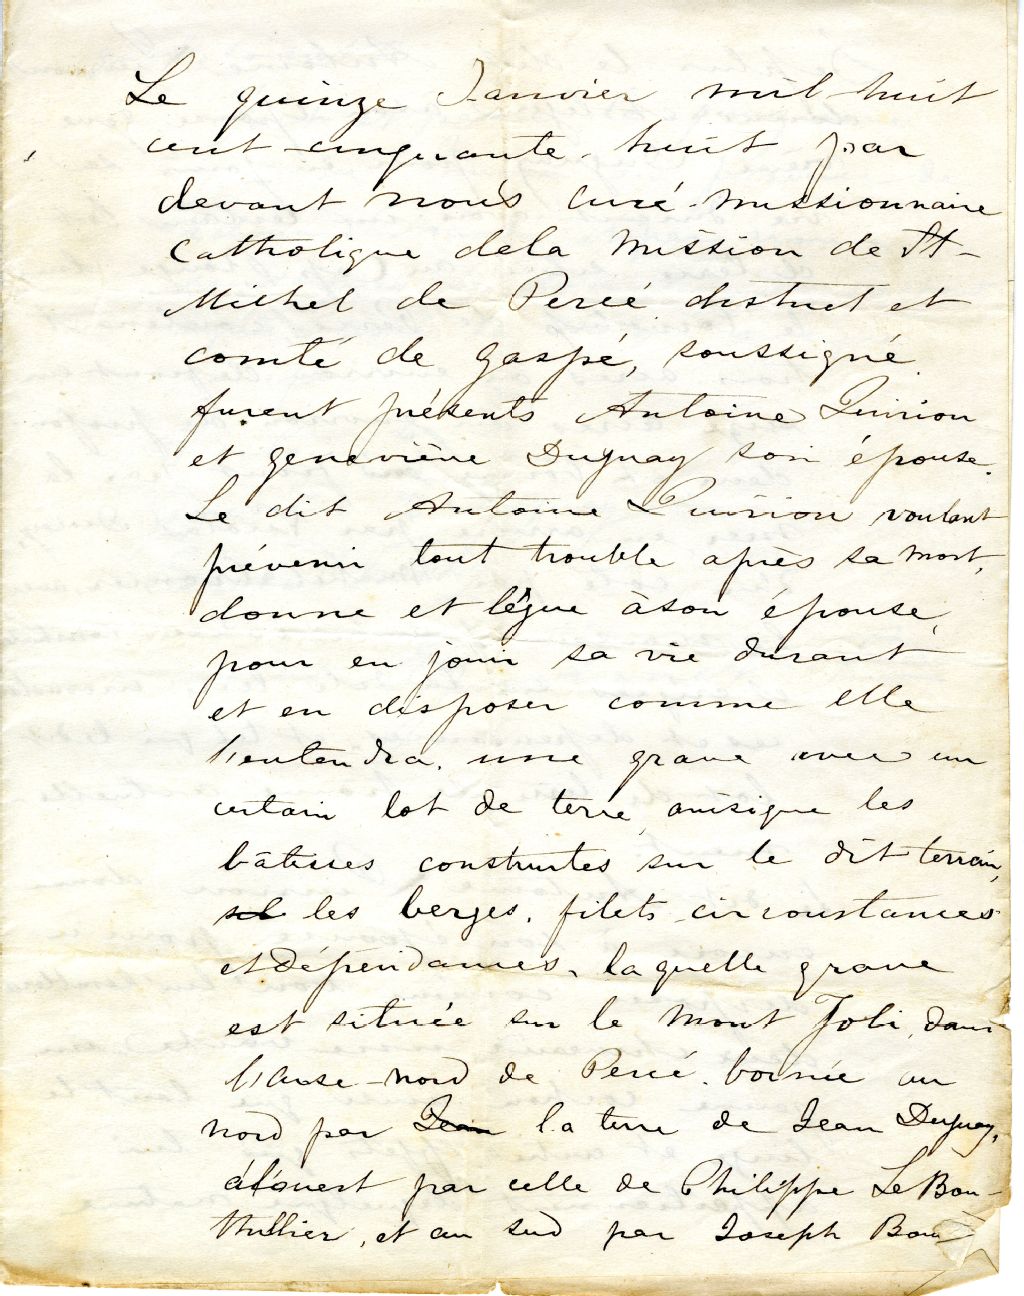 Le quinze Janvier mil huit
cent cinquante-huit par
devant nous curé missionnaire
catholique de la mission de St-
Michel de Percé district et
comté de gaspé, soussigné
furent présents Antoine Quirion
et geneviève Duguay son épouse.
Le dit Antoine Quirion voulant
prévenir tout trouble après sa mort,
donne et lègue à son épouse,
pour en jouir sa vie durant
et en disposer comme elle
l'entendra, une grave avec un
certain lot de terre, ainsique les
bâtisses construites sur le dit terrain,
les berges, filets, circonstances
et dépendances, laquelle grave
est située sur le Mont Joli, dans
l'anse-nord de Percé, bornée au
nord par Jean la terre de Jean Duguay,
à l'ouest par celle de Philippe Le Bou-
thillier, et au sud par Joseph Bou